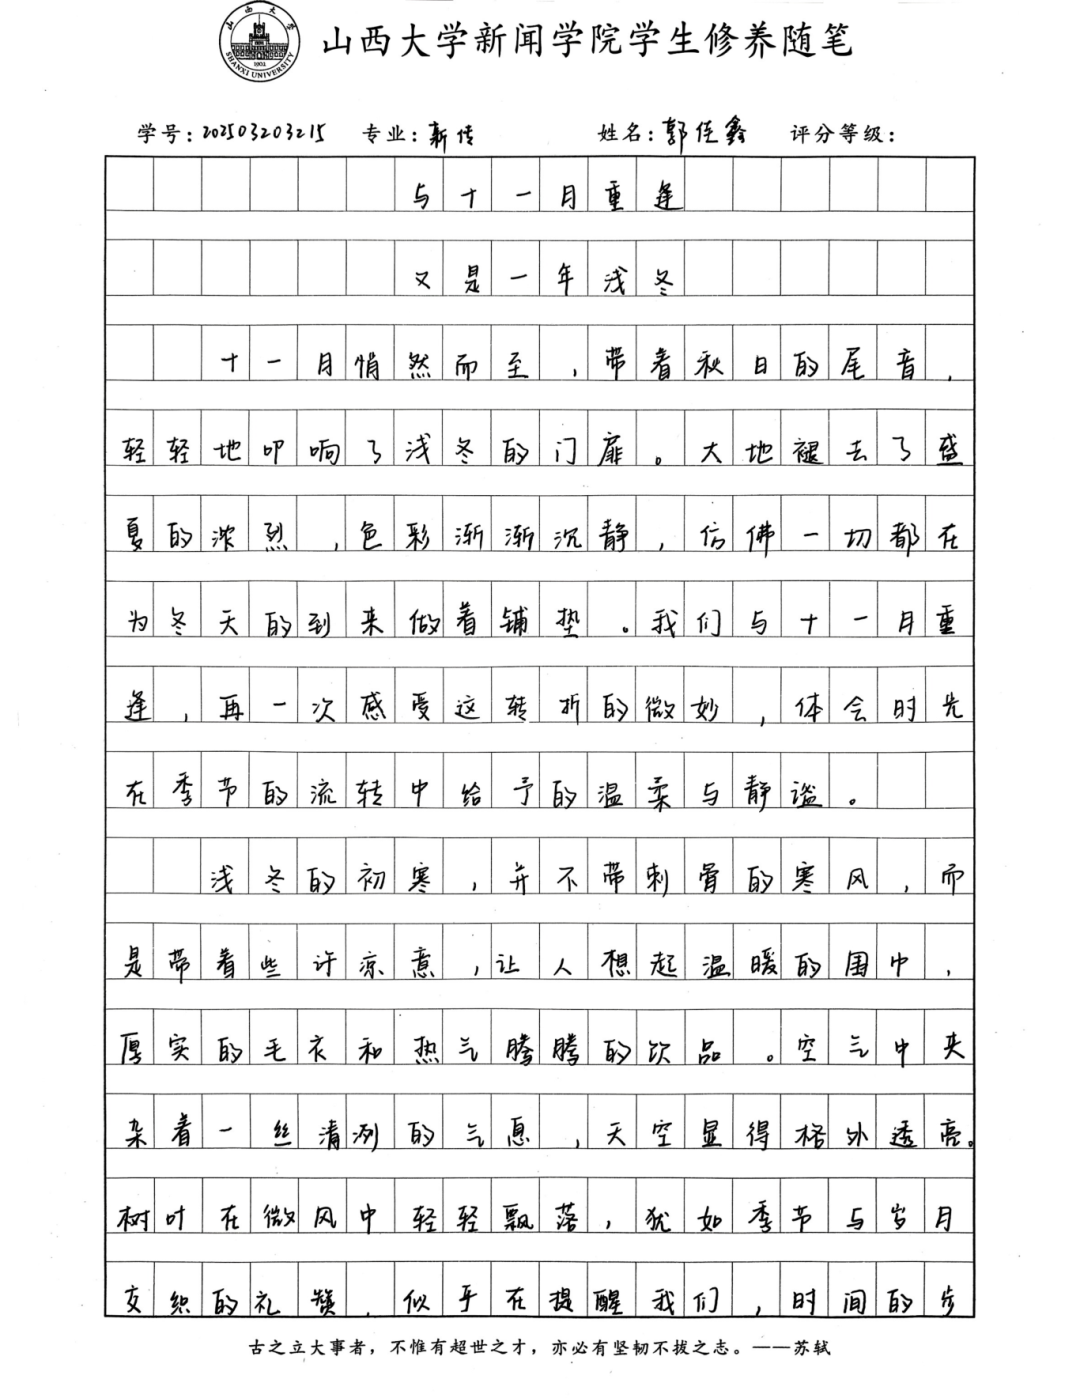 山西大学
SHANXI UNIVERSITY
1902
山西大学新闻学院学生修养随笔
学号：202503203215 专业：新传 姓名：郭佳鑫 评分等级：
与十一月重逢
又是一年浅冬
十一月悄然而至，带着秋日的尾音，
轻轻地叩响了浅冬的门扉。大地褪去了盛
夏的浓烈，色彩渐渐沉静，仿佛一切都在
为冬天的到来做着铺垫。我们与十一月重
逢，再一次感受这转折的微妙，体会时光
在季节的流转中给予的温柔与静谧。
浅冬的初寒，并不带刺骨的寒风，而
是带着些许凉意，让人想起温暖的围巾，
厚实的毛衣和热气腾腾的饮品。空气中夹
杂着一丝清冽的气息，天空显得格外透亮。
树叶在微风中轻轻飘落，犹如季节与岁月
交织的礼赞，似乎在提醒我们，时间的步
古之立大事者，不惟有超世之才，亦必有坚韧不拔之志。——苏轼